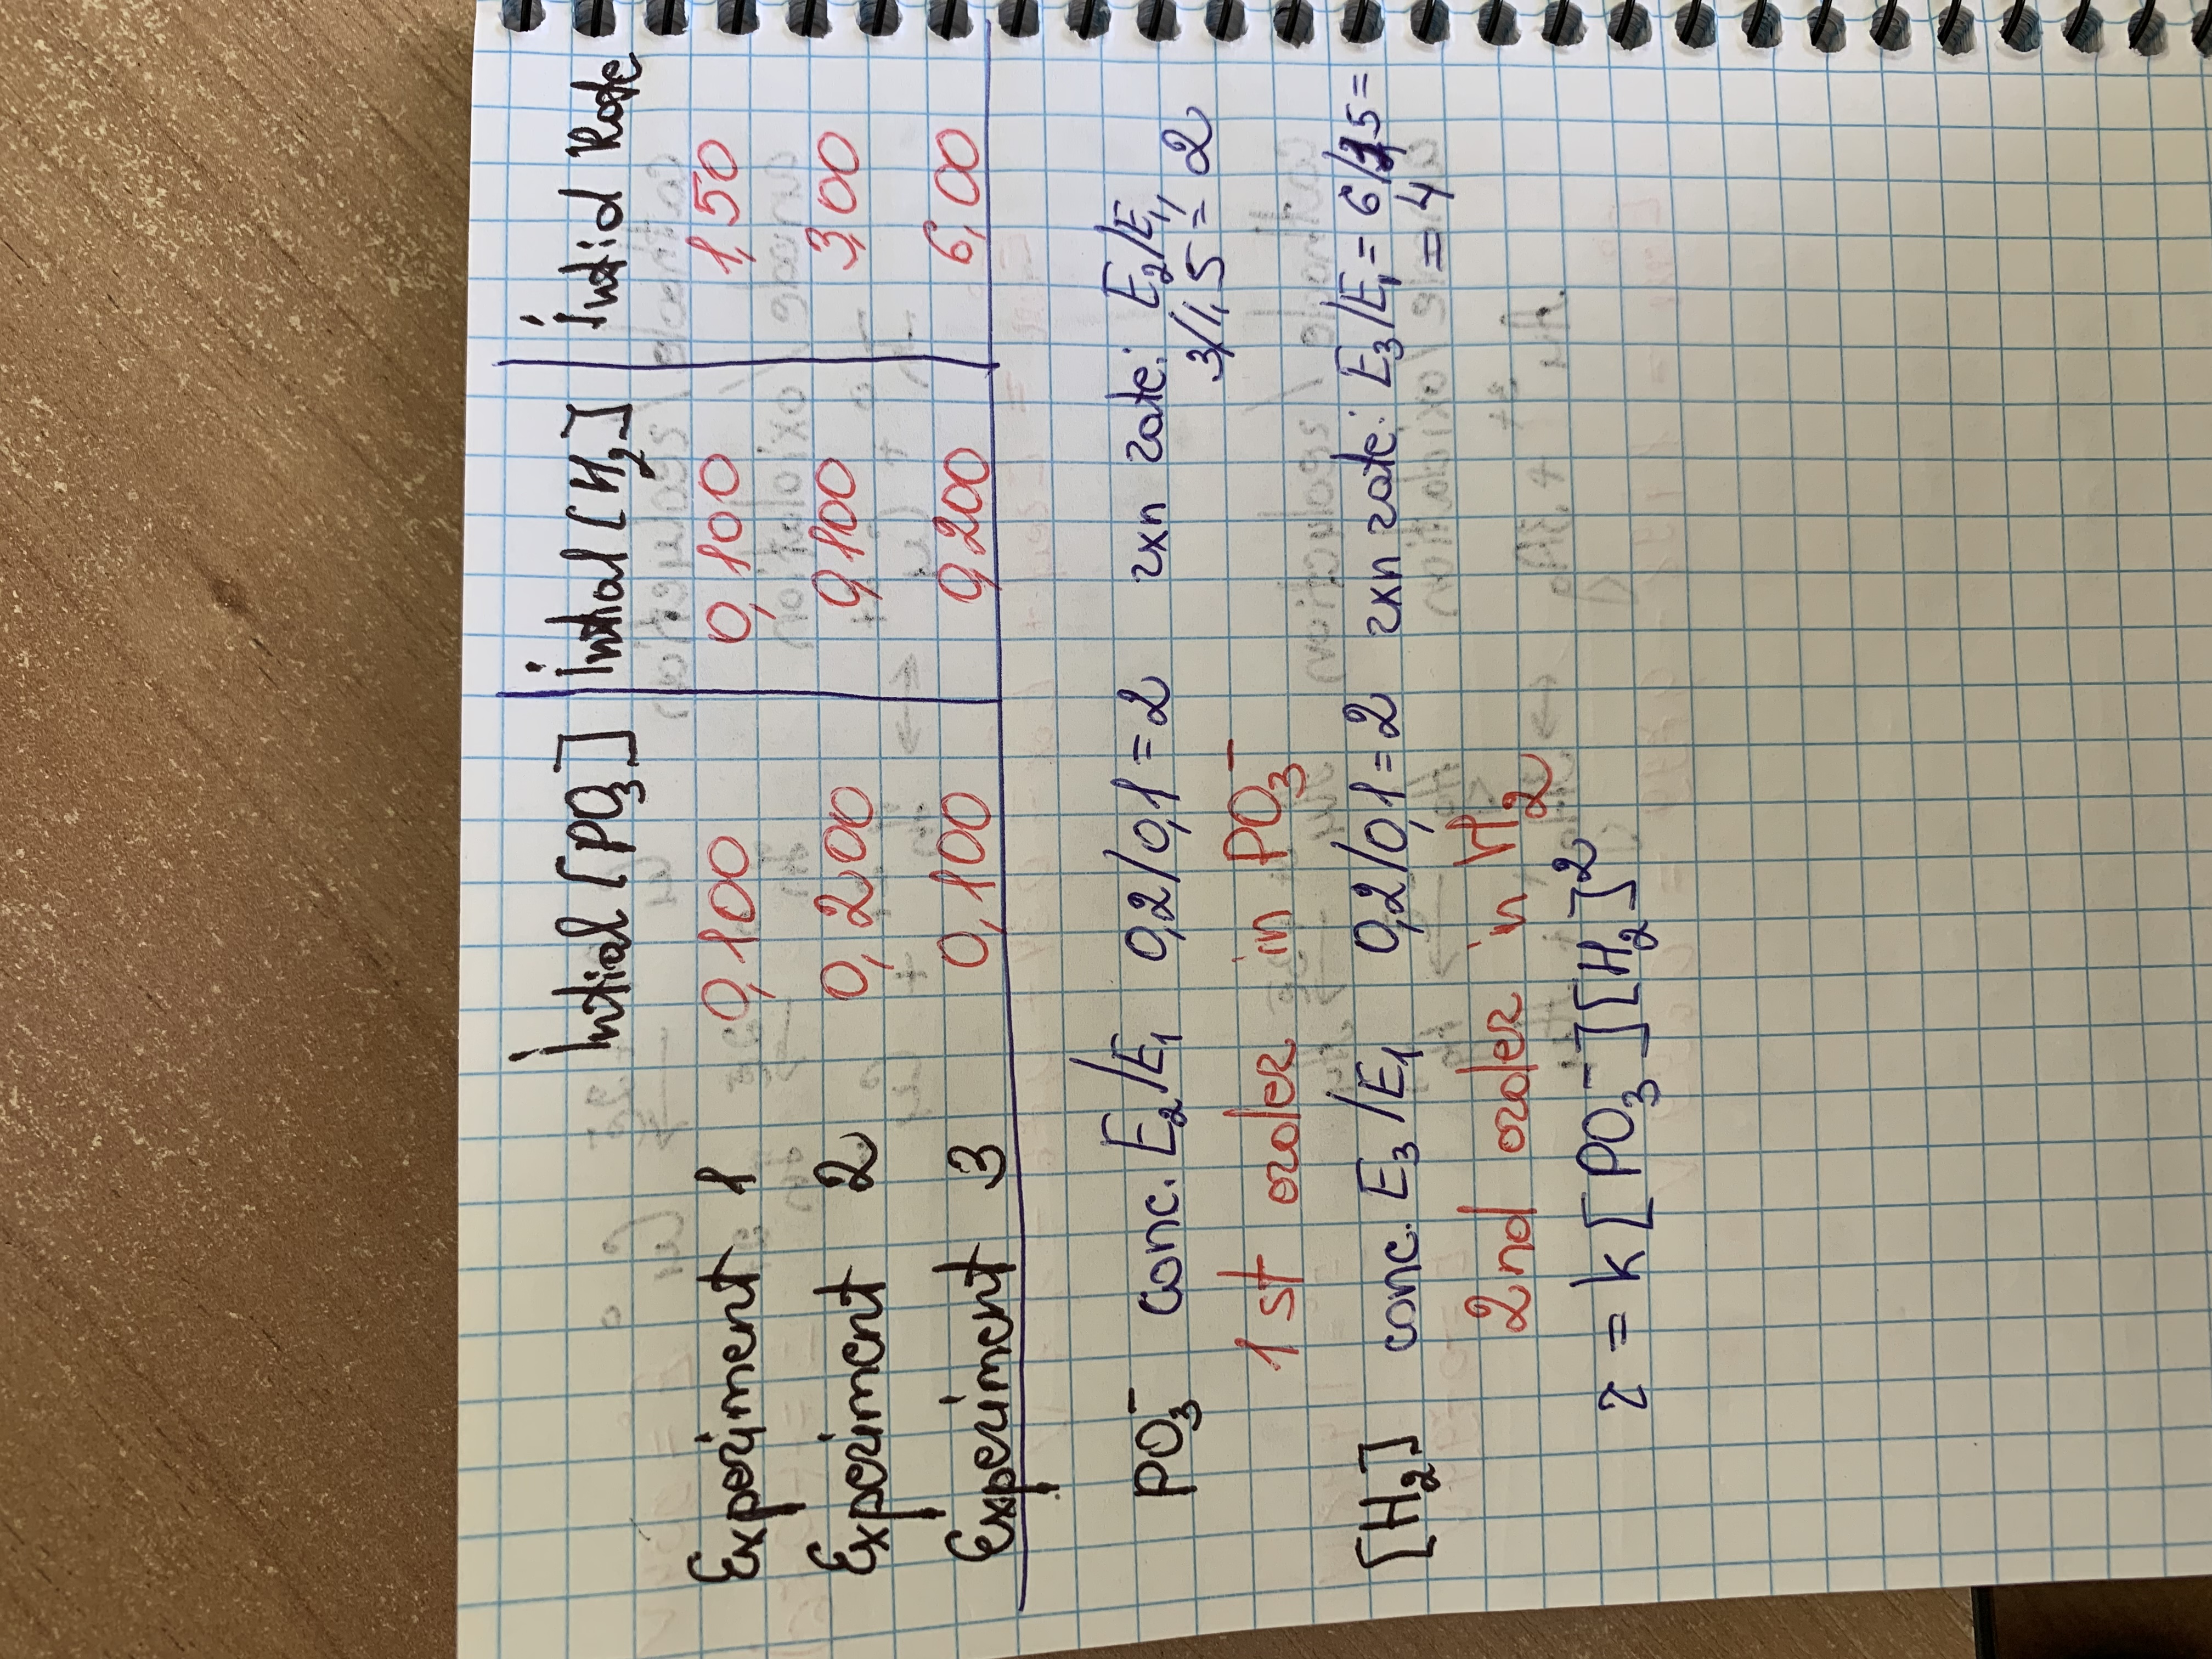 Initial [PO3-] Initial [H2] Initial Rate
Experiment 1 0,100 0,100 1,50
Experiment 2 0,200 0,100 3,00
Experiment 3 0,100 0,200 6,00
PO3- conc. E2/E1 0,2/0,1 = 2 rxn rate: E2/E1,
3/1,5 = 2
1 st order in PO3-
[H2] conc. E3/E1 0,2/0,1 = 2 rxn rate: E3/E1 = 6/1,5 =
= 4
2nd order in H2
r = k [PO3-][H2]2